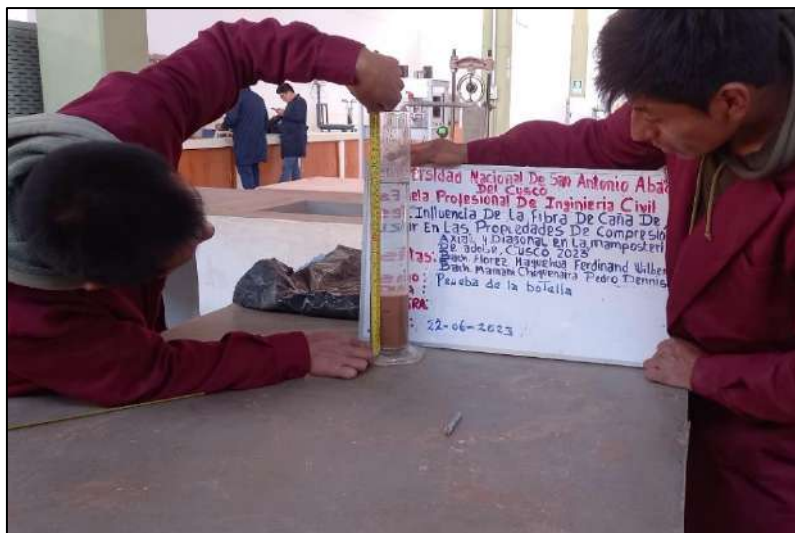 ersidad Nacional De San Antonio Abad
Del Cusco
ela Profesional De Inginieria Civil
Influencia De La Fibra De Caña De
ar En Las Propiedades De Compresió
Axial y Diagonal en La mamposteri
De adobe, Cusco 2023
tas: Bach. Florez Haquehua Ferdinand Wilber
Bach. Mamani Choquenaira Pedro Dennis
: Prueba de la botella
: 22-06-2023